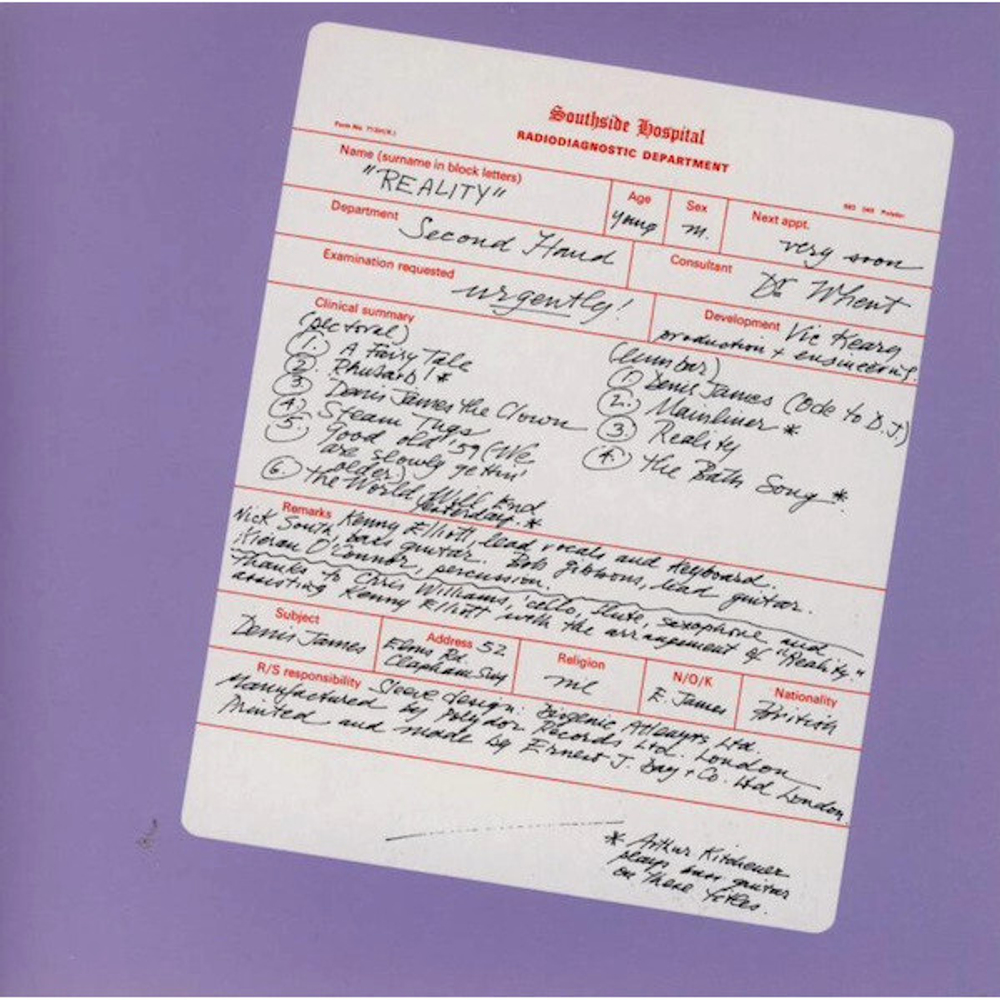 Southside Hospital
RADIODIAGNOSTIC DEPARTMENT
Name (surname in block letters)
"REALITY"
Age
young
Sex
m.
Next appt.
very soon
Department
Second Hand
Consultant
Dr. Whent
Examination requested
urgently!
Development Vic Keary
production + engineering.
Clinical summary
(pectoral)
1. A Fairy Tale
2. Rhubarb! *
3. Denis James the Clown
4. Steam Tugs
5. Good old '59 (We
are slowly gettin'
older)
6. The World Will End
Yesterday. *
(lumbar)
1. Denis James (Ode to D.J.)
2. Mainliner *
3. Reality
4. The Bath Song *
Remarks Kenny Elliott, lead vocals and keyboard.
Nick South, bass guitar. Bob Gibbons, lead guitar.
Kieran O'Connor, percussion.
Thanks to Chris Williams, 'cello, flute, saxophone and
assisting Kenny Elliott with the arrangement of "Reality."
Subject
Denis James
Address 52
Elms Rd.
Clapham
Religion
nil
N/O/K
E. James
Nationality
British
R/S responsibility Sleeve design: Ltd.
Manufactured by Polydor Records Ltd. London
Printed and made by Ernest J. Day + Co. Ltd London.
* Arthur Kitchener
plays bass guitar
on these titles.